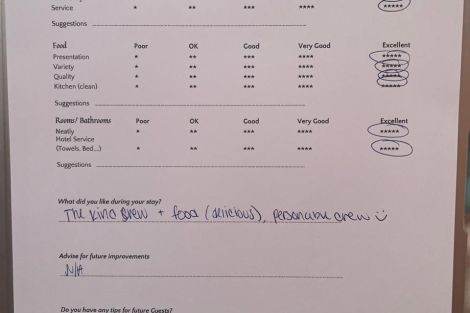 Service * ** *** **** *****
Suggestions
Food Poor OK Good Very Good Excellent
Presentation * ** *** **** *****
Variety * ** *** **** *****
Quality * ** *** **** *****
Kitchen (clean) * ** *** **** *****
Suggestions
Rooms/ Bathrooms Poor OK Good Very Good Excellent
Neatly * ** *** **** *****
Hotel Service
(Towels, Bed...) * ** *** **** *****
Suggestions
What did you like during your stay?
The kind crew + food (delicious), personable crew
Advise for future improvements
N/A
Do you have any tips for future Guests?